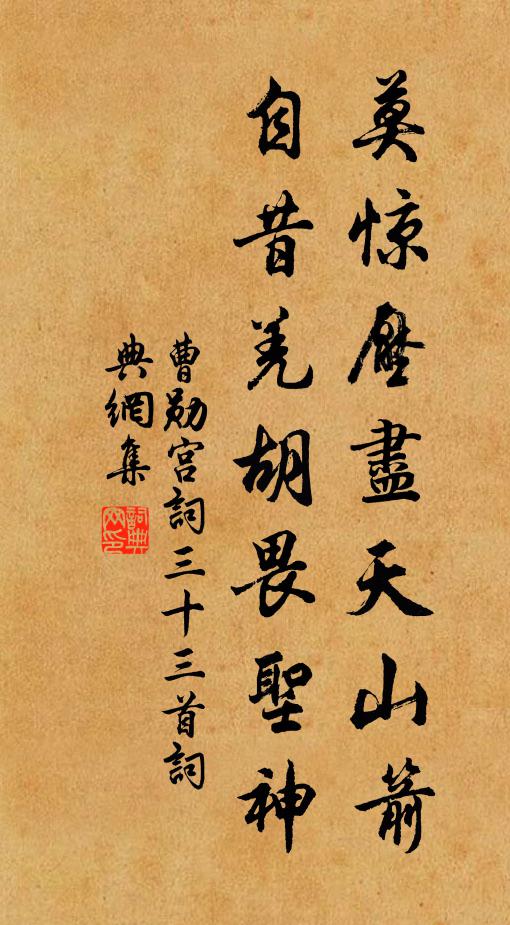 莫惊壓盡天山箭
自昔羌胡畏聖神
曹勛宫詞三十三首詞
典網集
詞典網印